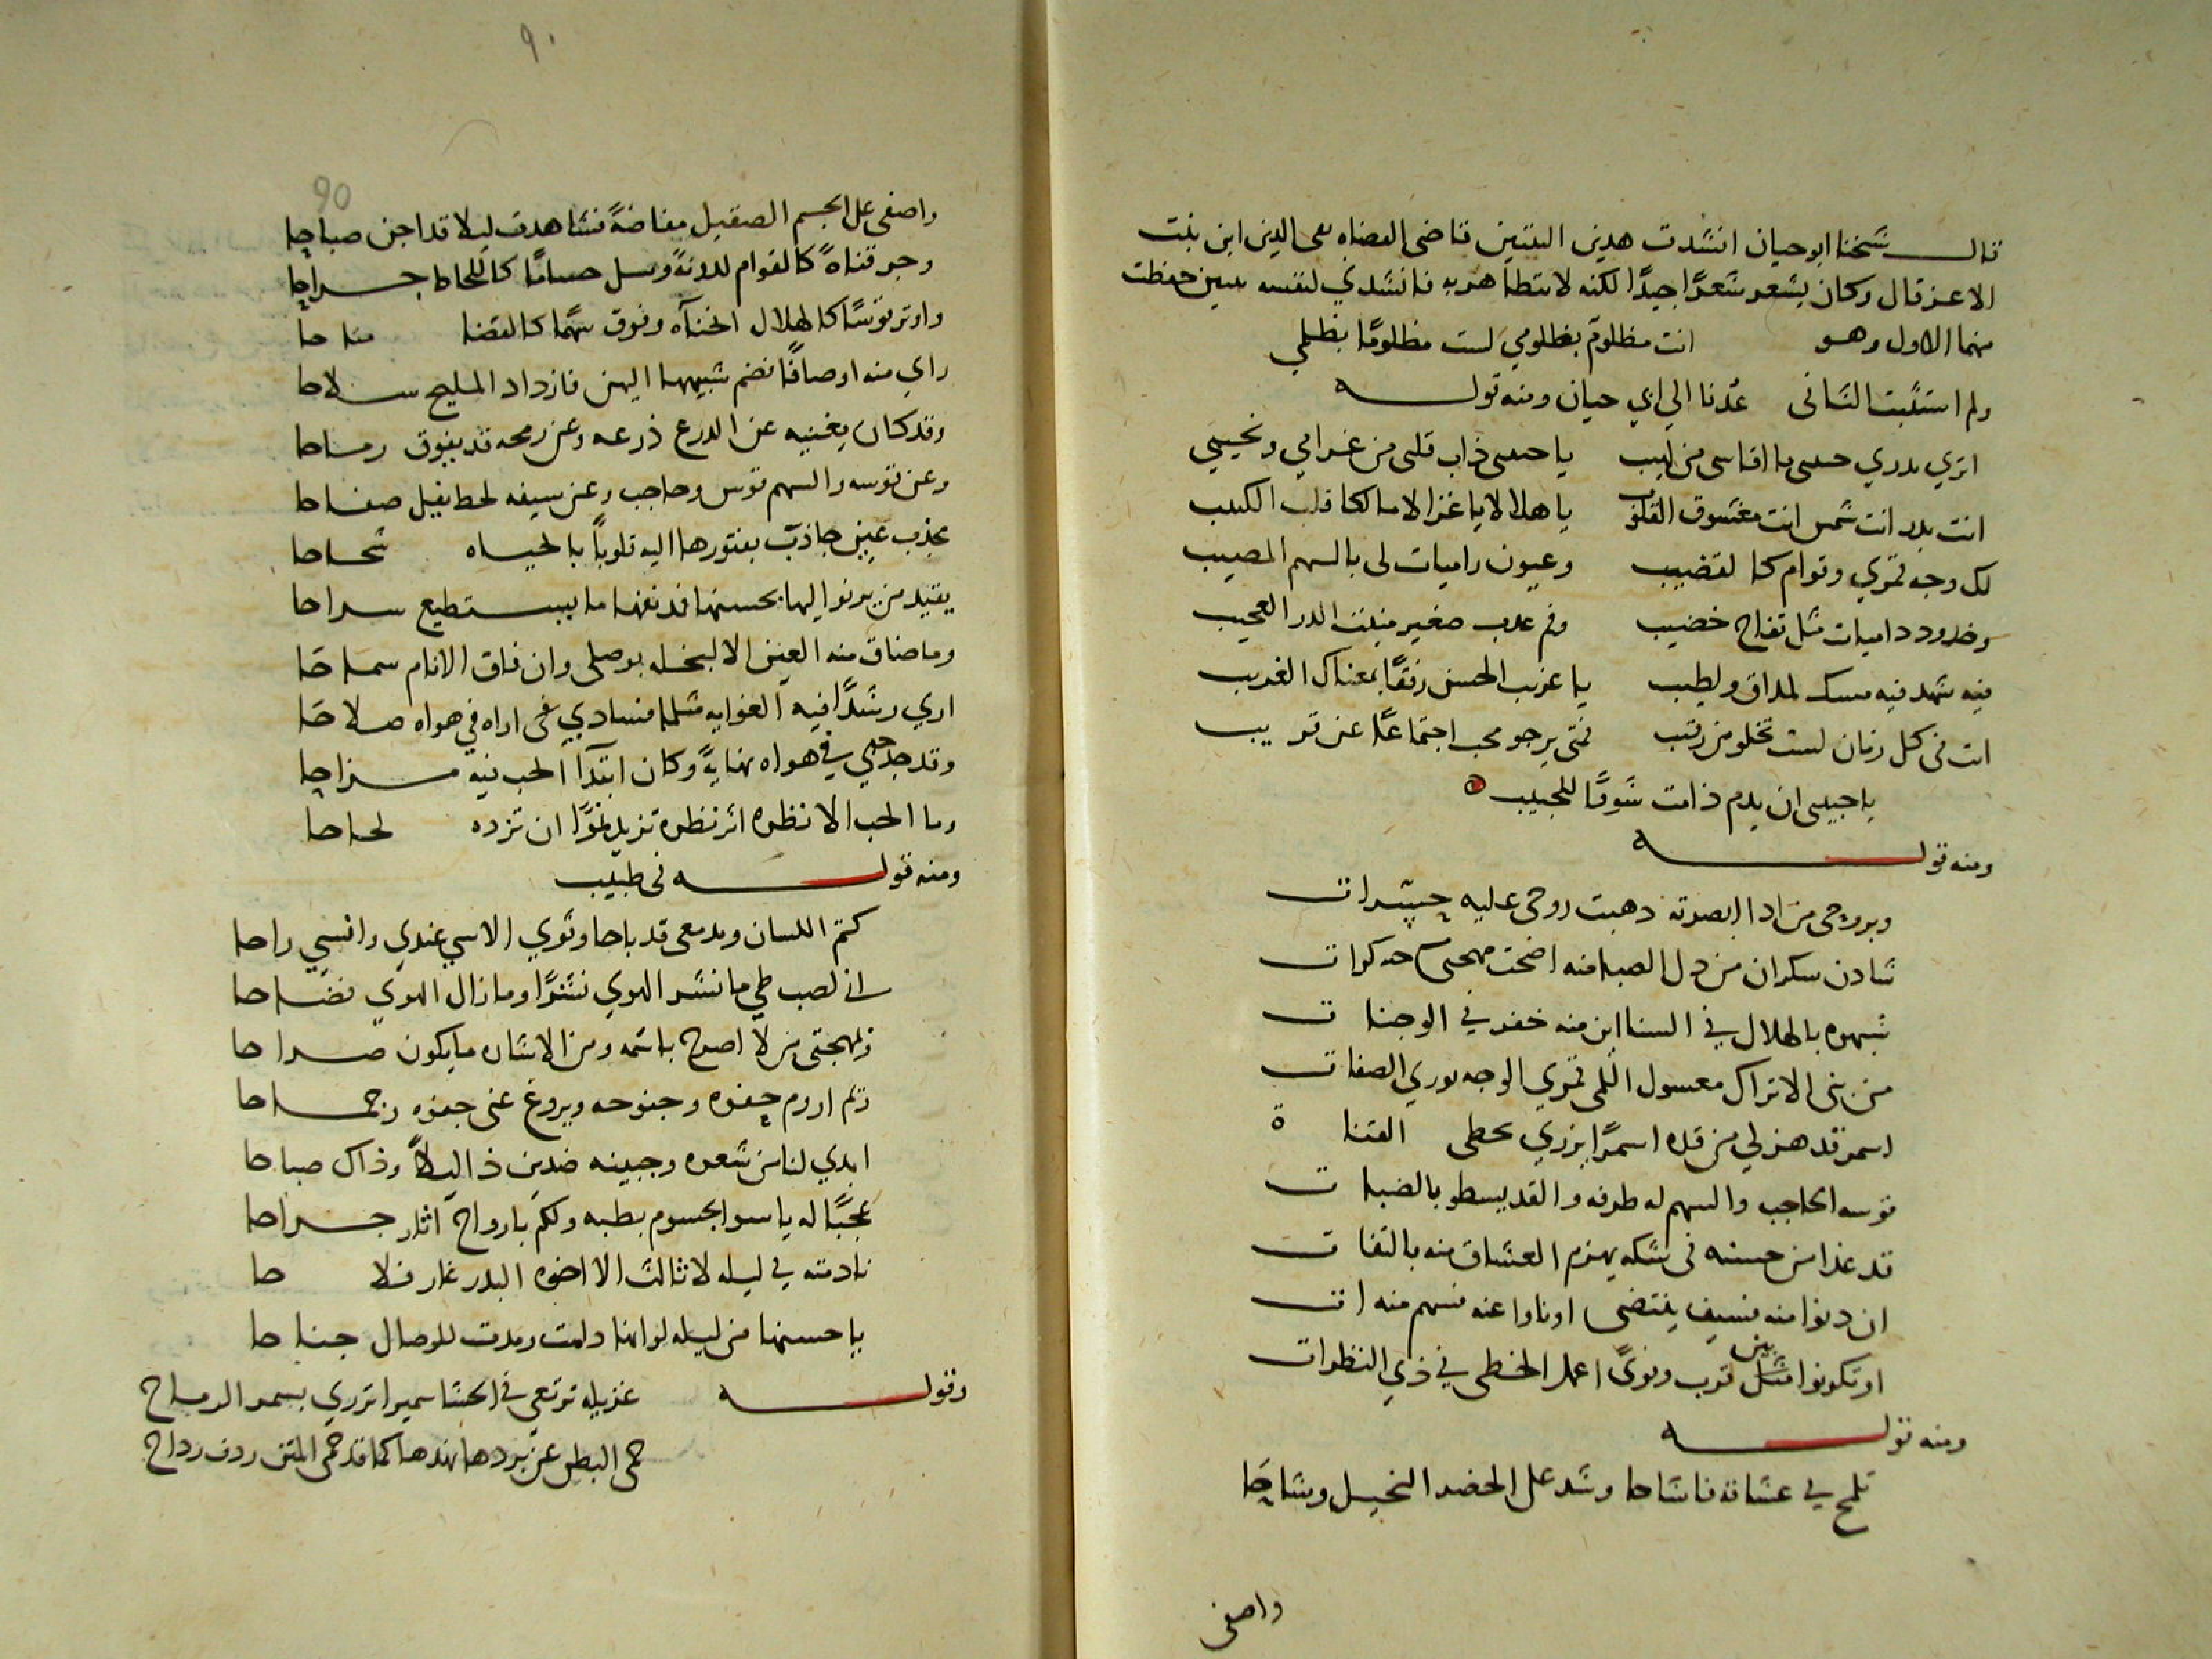 قال شيخنا ابو حيان انشدت هذين البيتين قاضى القضاه تقى الدين ابن بنت
الاعز قال وكان يشعر شعرًا جيدًا لكنه لا يتظاهر به فانشدني لنفسه بيتين حفظت
منهما الاول وهو انت مظلوم بظلومي لست مظلومًا بظلمي
ولم استثبت الثانى عُدنا الي ابي حيان ومنه قوله
اتري يدري حبيبى ما اقاسى من لهيب يا حبيبى ذاب قلبى من غرامي ونحيبي
انت بدر انت شمس انت معشوق القلوب يا هلالا يا غزالا مالكا قلب الكئيب
لك وجه قمري وقوام كالقضيب وعيون راميات لى بالسهم المصيب
وخدود داميات مثل تفاح خضيب وفم عذب صغير منبت الدر العجيب
فيه شهد فيه مسك لمذاق ولطيب يا غريب الحسن رفقًا بمعناك الغريب
انت فى كل زمان لست تخلو من رقيب فمتى يرجو محب اجتماعًا عن قريب
يا حبيبى ان يدم ذا مت شوقًا للحبيب
ومنه قوله
وبروحى من اذا ابصرته ذهبت روحى عليه حسرات
شادن سكران من دل الصبا منه اضحت مهجتى سكرات
شبهوه بالهلال في السنا اين منه خفر في الوجنات
من بنى الاتراك معسول اللمى قمري الوجه نوري الصفات
اسمر قد هز لي من قده اسمرًا يزري بخطى القناة
قوسه الحاجب والسهم له طرفه والقد يسطو بالضبات
قد غدا من حسنه فى شكه يهزم العشاق منه بالتفات
ان دنوا منه فسيف ينتضى او ناوا عنه فسهم منه ات
او تكونوا بين قرب ونوًى اعمل الخطى في ذي النظرات
ومنه قوله
تلمح في عشاقه فاشاحا وشد على الخصر النحيل وشاحًا
واصفى
٩٠
90
واصفى على الجسم الصقيل مفاضةً فشاهدت ليلا قد اجن صباحا
وجر قناةً كالقوام لدونةً وسل حسامًا كاللحاظ جراحا
واوتر قوسًا كالهلال انحنآه وفوق سهمًا كالقضا متاحا
راي منه اوصافًا فضم شبيهها اليهن فازداد المليح سلاحا
وقد كان يغنيه عن الدرع ذرعه وعن رمحه قد يفوق رماحا
وعن قوسه والسهم قوس وحاجب وعن سيفه لحظ يفل صفاحا
بجذب عين جاذبت بفتورها اليه قلوبًا بالحياه شحاحا
يقيد من يرنوا اليها بحسنها فدنفها ما يستطيع سراحا
وما ضاق منه العين الا لبخله بوصلى وان فاق الانام سماحًا
اري رشدًا فيه الغوايه مثلما فسادي غى اراه في هواه صلاحًا
وقد جد جدي في هواه نهايةً وكان ابتدآ الحب فيه مزاحا
وما الحب الا نظره اثر نظره تزيد نموًا ان تزده لحاحا
ومنه قوله فى طبيب
كتم اللسان ومدمعى قد باحا وثوي الاسي عندي وانسي راحا
انى لصب طي ما نشر الهوي نشرًا وما زال الهوي نضاحا
ولمهجتى من لا اصرح باسمه ومن الاشاره ما يكون صراحا
ابدي لنا من شعره وجبينه ضدين ذا ليلاً وذاك صباحا
عجبًا له ياسو الجسوم بطبه ولكم بارواح اثار جراحا
نادمته في ليله لا ثالث الا اخوه البدر غار فلاحا
يا حسنها من ليله لو انها دامت ومدت للوصال جناحا
وقوله غزيله ترتعي في الحشا سميرا تزري بسمر الرماح
حمى البطن عن بردها نهدها كما قد حمى المتن ردف رداح